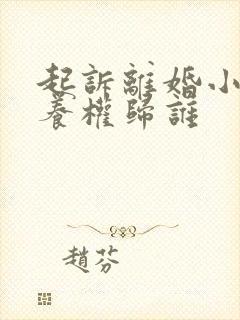 起訴離婚小
養權歸誰
趙芬